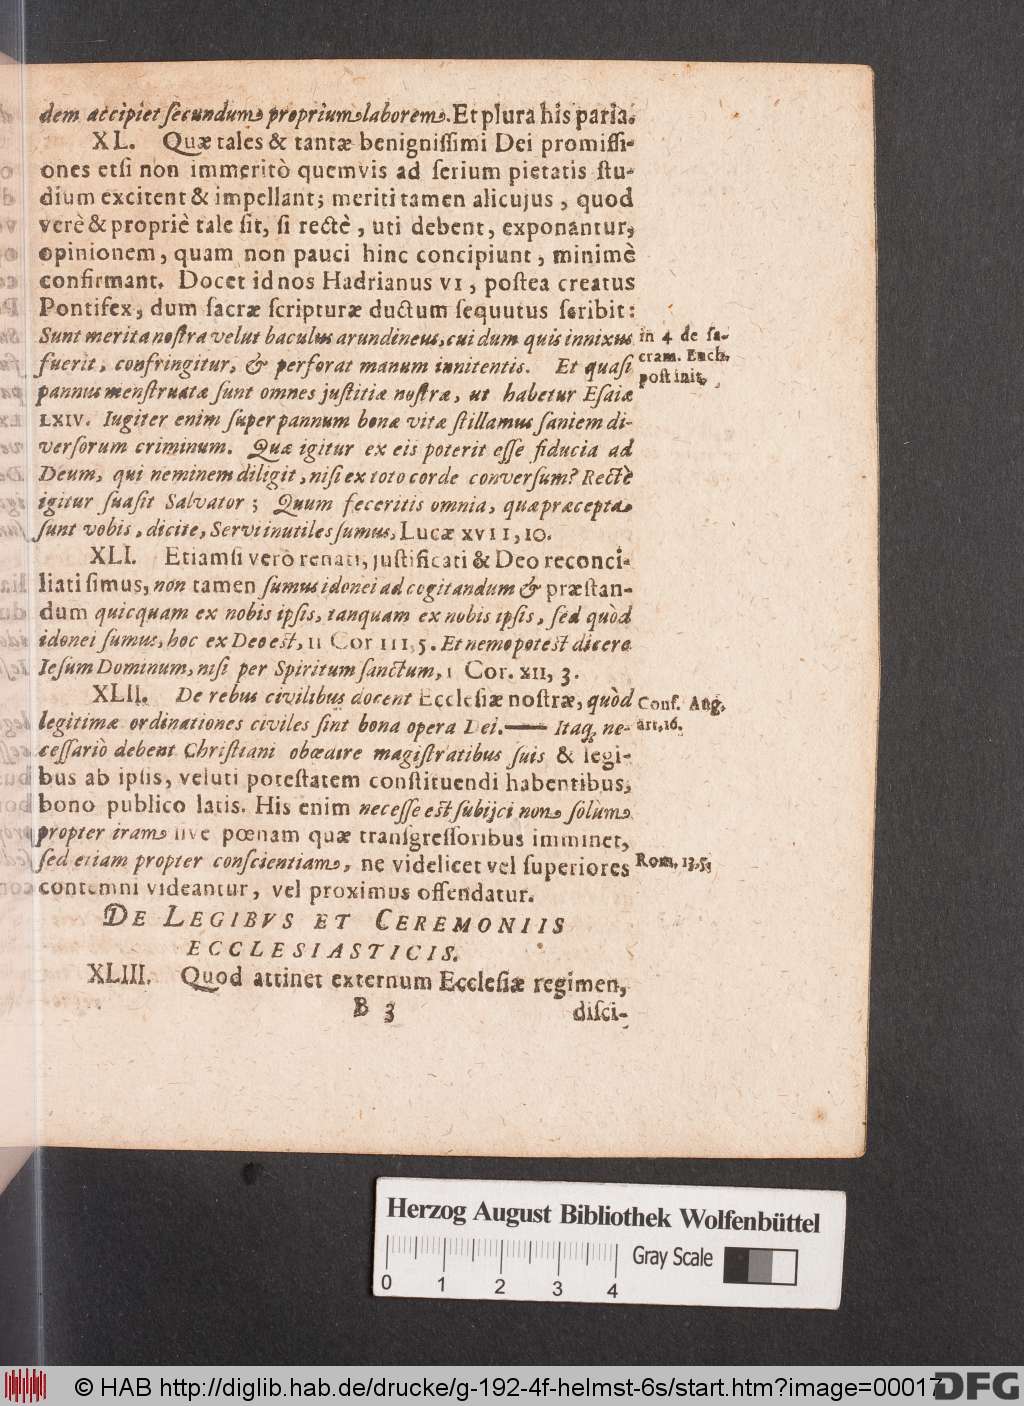 dem accipiet secundum proprium laborem. Et plura his paria.
XL. Quæ tales & tantæ benignissimi Dei promissi-
ones etsi non immeritò quemvis ad serium pietatis stu-
dium excitent & impellant; meriti tamen alicujus, quod
verè & propriè tale sit, si rectè, uti debent, exponantur,
opinionem, quam non pauci hinc concipiunt, minimè
confirmant. Docet id nos Hadrianus VI, postea creatus
Pontifex, dum sacræ scripturæ ductum sequutus scribit:
Sunt merita nostra velut baculus arundineus, cui dum quis innixus
in 4 de sa-
fuerit, confringitur, & perforat manum innitentis. Et quasi
cram. Euch.
pannus menstruatæ sunt omnes justitiæ nostræ, ut habetur Esaiæ
post init.
LXIV. Iugiter enim super pannum bonæ vitæ stillamus saniem di-
versorum criminum. Quæ igitur ex eis poterit esse fiducia ad
Deum, qui neminem diligit, nisi ex toto corde conversum? Rectè
igitur suasit Salvator; Quum feceritis omnia, quæ præcepta
sunt vobis, dicite, Servi inutiles sumus, Lucæ XVII, 10.
XLI. Etiamsi verò renati, justificati & Deo reconci-
liati simus, non tamen sumus idonei ad cogitandum & præstan-
dum quicquam ex nobis ipsis, tanquam ex nobis ipsis, sed quòd
idonei sumus, hoc ex Deo est, II Cor III, 5. Et nemo potest dicere
Iesum Dominum, nisi per Spiritum sanctum, I Cor. XII, 3.
XLII. De rebus civilibus docent Ecclesiæ nostræ, quòd
Conf. Aug.
legitimæ ordinationes civiles sint bona opera Dei. —— Itaq; ne-
art. 16.
cessariò debent Christiani obœdire magistratibus suis & legi-
bus ab ipsis, veluti potestatem constituendi habentibus,
bono publico latis. His enim necesse est subijci non solum
propter iram sive pœnam quæ transgressoribus imminet,
sed etiam propter conscientiam, ne videlicet vel superiores
Rom. 13, 5.
contemni videantur, vel proximus offendatur.
DE LEGIBVS ET CEREMONIIS
ECCLESIASTICIS.
XLIII. Quod attinet externum Ecclesiæ regimen,
B 3
disci-
Herzog August Bibliothek Wolfenbüttel
Gray Scale
0 1 2 3 4
© HAB http://diglib.hab.de/drucke/g-192-4f-helmst-6s/start.htm?image=00017
DFG